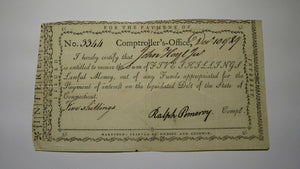 FOR THE PAYMENT OF
No. 3344 Comptroller's-Office, Decr 10 1789
I hereby certify that John
is entitled to receive the Sum of FIVE SHILLINGS
Lawful Money, out of any Funds appropriated for the
Payment of interest on the liquidated Debt of the State of
Connecticut.
Five shillings
Ralph Pomeroy Compt.
HARTFORD: PRINTED BY HUDSON AND GOODWIN.